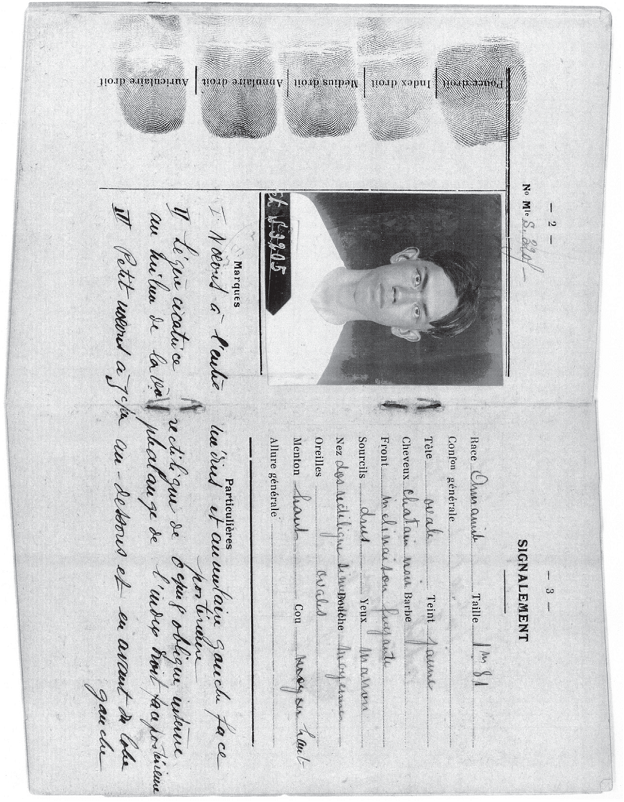 Pouce droit
Index droit
Medius droit
Annulaire droit
Auriculaire droit
— 2 —
No Mle S.
S.3905
Marques
I Nœvus à l'entre médius et annulaire gauche face
postérieure
II Légère cicatrice rectiligne de 0c,5 oblique interne
au milieu de la phalange de l'index droit face postérieure
III Petit nœvus à au-dessous et en avant du lobe
gauche
— 3 —
SIGNALEMENT
Race Annamite Taille 1m,81
Confon générale
Tête ovale Teint jaune
Cheveux chatain noir Barbe
Front inclinaison fuyante
Sourcils drus Yeux marron
Nez dos rectiligne Bouche moyenne
Oreilles ovales
Menton haut Cou moyen haut
Allure générale
Particulières